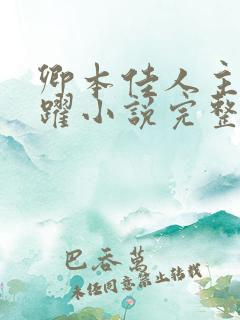 卿本佳人主
躍小說完整
巴吞萬
未經同意禁止轉載